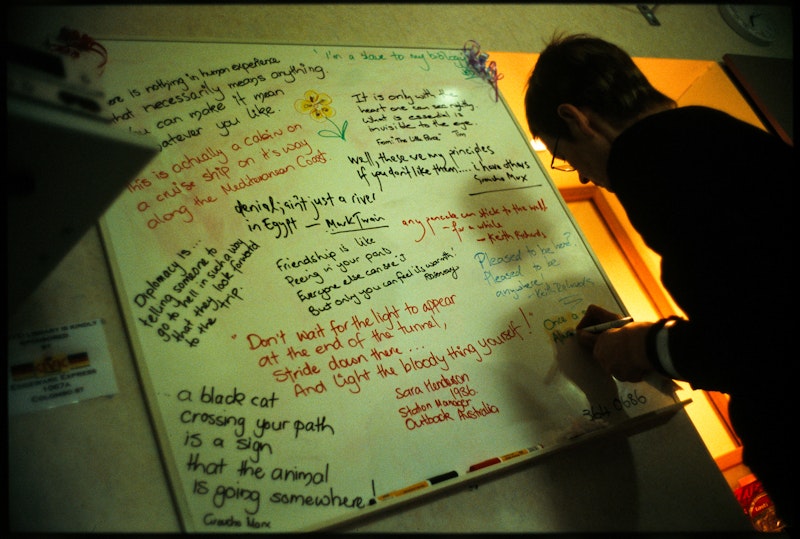 "I'm a slave to my biology
ere is nothing in human experience
that necessarily means anything.
You can make it mean
whatever you like.
This is actually a cabin on
a cruise ship on it's way
along the Mediterranean Coast.
It is only with
heart one can see rightly
What is essential is
invisible to the eye
From "The Little Prince"
Well, these are my principles
If you don't like them..... i have others
Groucho Marx
denial; aint just a river
in Egypt — Mark Twain
any pencula can stick to the wall
- for a while
- Keith Richards
Friendship is like
Peeing in your pants
Everyone else can see it
But only you can feel its warmth!
Pleased to be here?
Pleased to be
anywhere
- Keith Richards
Diplomacy is...
telling someone to
go to hell in such a way
that they look forward
to the trip.
"Don't wait for the light to appear
at the end of the tunnel,
Stride down there...
And light the bloody thing yourself!"
Sara Henderson
1936
Station Manager
Outback Australia
Once a
364 0686
a black cat
crossing your path
is a sign
that the animal
is going somewhere!
Groucho Marx
LIBRARY IS KINDLY
SPONSORED
BY
EXPRESS
1007A
COLOMBO ST